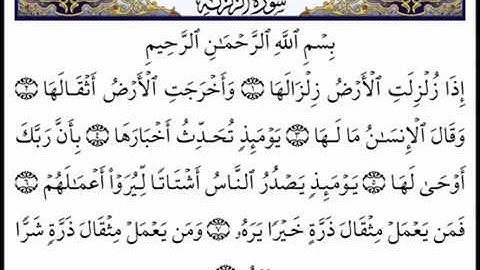 سورة الزلزلة
بِسْمِ ٱللَّهِ ٱلرَّحْمَـٰنِ ٱلرَّحِيمِ
إِذَا زُلْزِلَتِ ٱلْأَرْضُ زِلْزَالَهَا ١ وَأَخْرَجَتِ ٱلْأَرْضُ أَثْقَالَهَا ٢
وَقَالَ ٱلْإِنسَـٰنُ مَا لَهَا ٣ يَوْمَئِذٍ تُحَدِّثُ أَخْبَارَهَا ٤ بِأَنَّ رَبَّكَ
أَوْحَىٰ لَهَا ٥ يَوْمَئِذٍ يَصْدُرُ ٱلنَّاسُ أَشْتَاتًا لِّيُرَوْا۟ أَعْمَـٰلَهُمْ ٦
فَمَن يَعْمَلْ مِثْقَالَ ذَرَّةٍ خَيْرًا يَرَهُۥ ٧ وَمَن يَعْمَلْ مِثْقَالَ ذَرَّةٍ شَرًّا